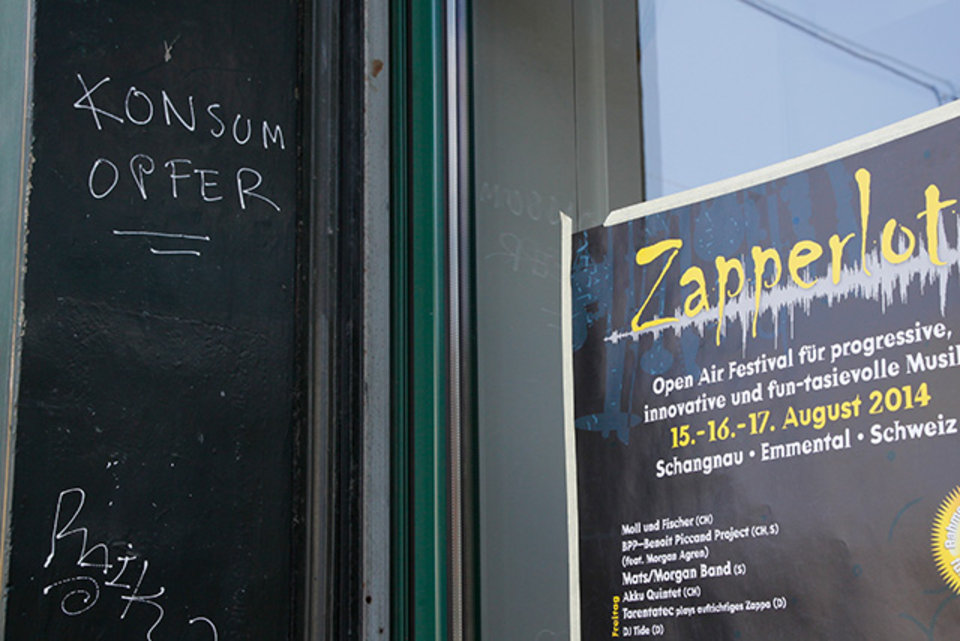 KONSUM
OPFER
Zapperlot
Open Air Festival für progressive,
innovative und fun-tasievolle Musik
15.-16.-17. August 2014
Schangnau · Emmental · Schweiz
Freitag
Moll und Fischer (CH)
BPP–Benoit Piccand Project (CH, S)
(feat. Morgan Agren)
Mats/Morgan Band (S)
Akku Quintet (CH)
Tarentatec plays aufrichtiges Zappa (D)
DJ Tide (D)